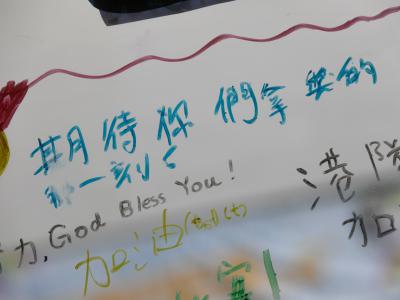 期待你們拿獎的
那一刻！
力, God Bless You!
加油
港隊
加